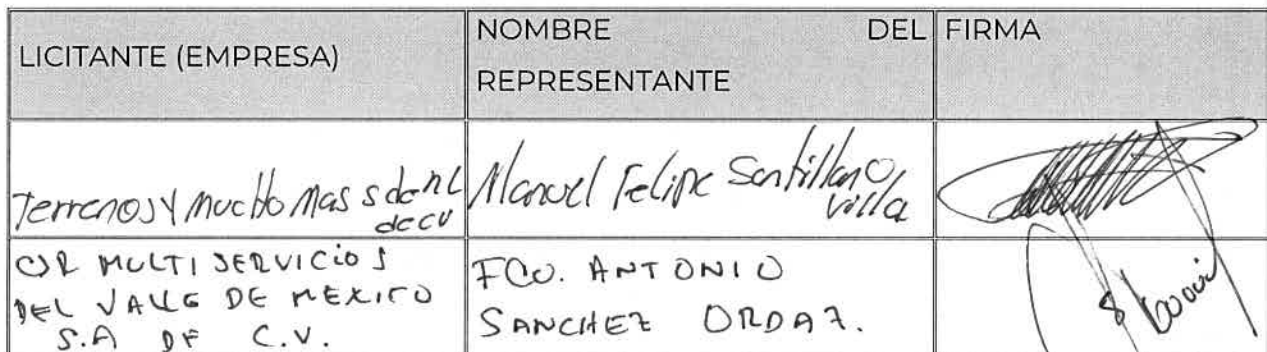 LICITANTE (EMPRESA)
NOMBRE DEL
REPRESENTANTE
FIRMA
Terrenos y mucho mas s de RL
de cv
Manuel Felipe Santillano
villa
CSR MULTISERVICIOS
DEL VALLE DE MEXICO
S.A DE C.V.
FCO. ANTONIO
SANCHEZ ORDAZ.